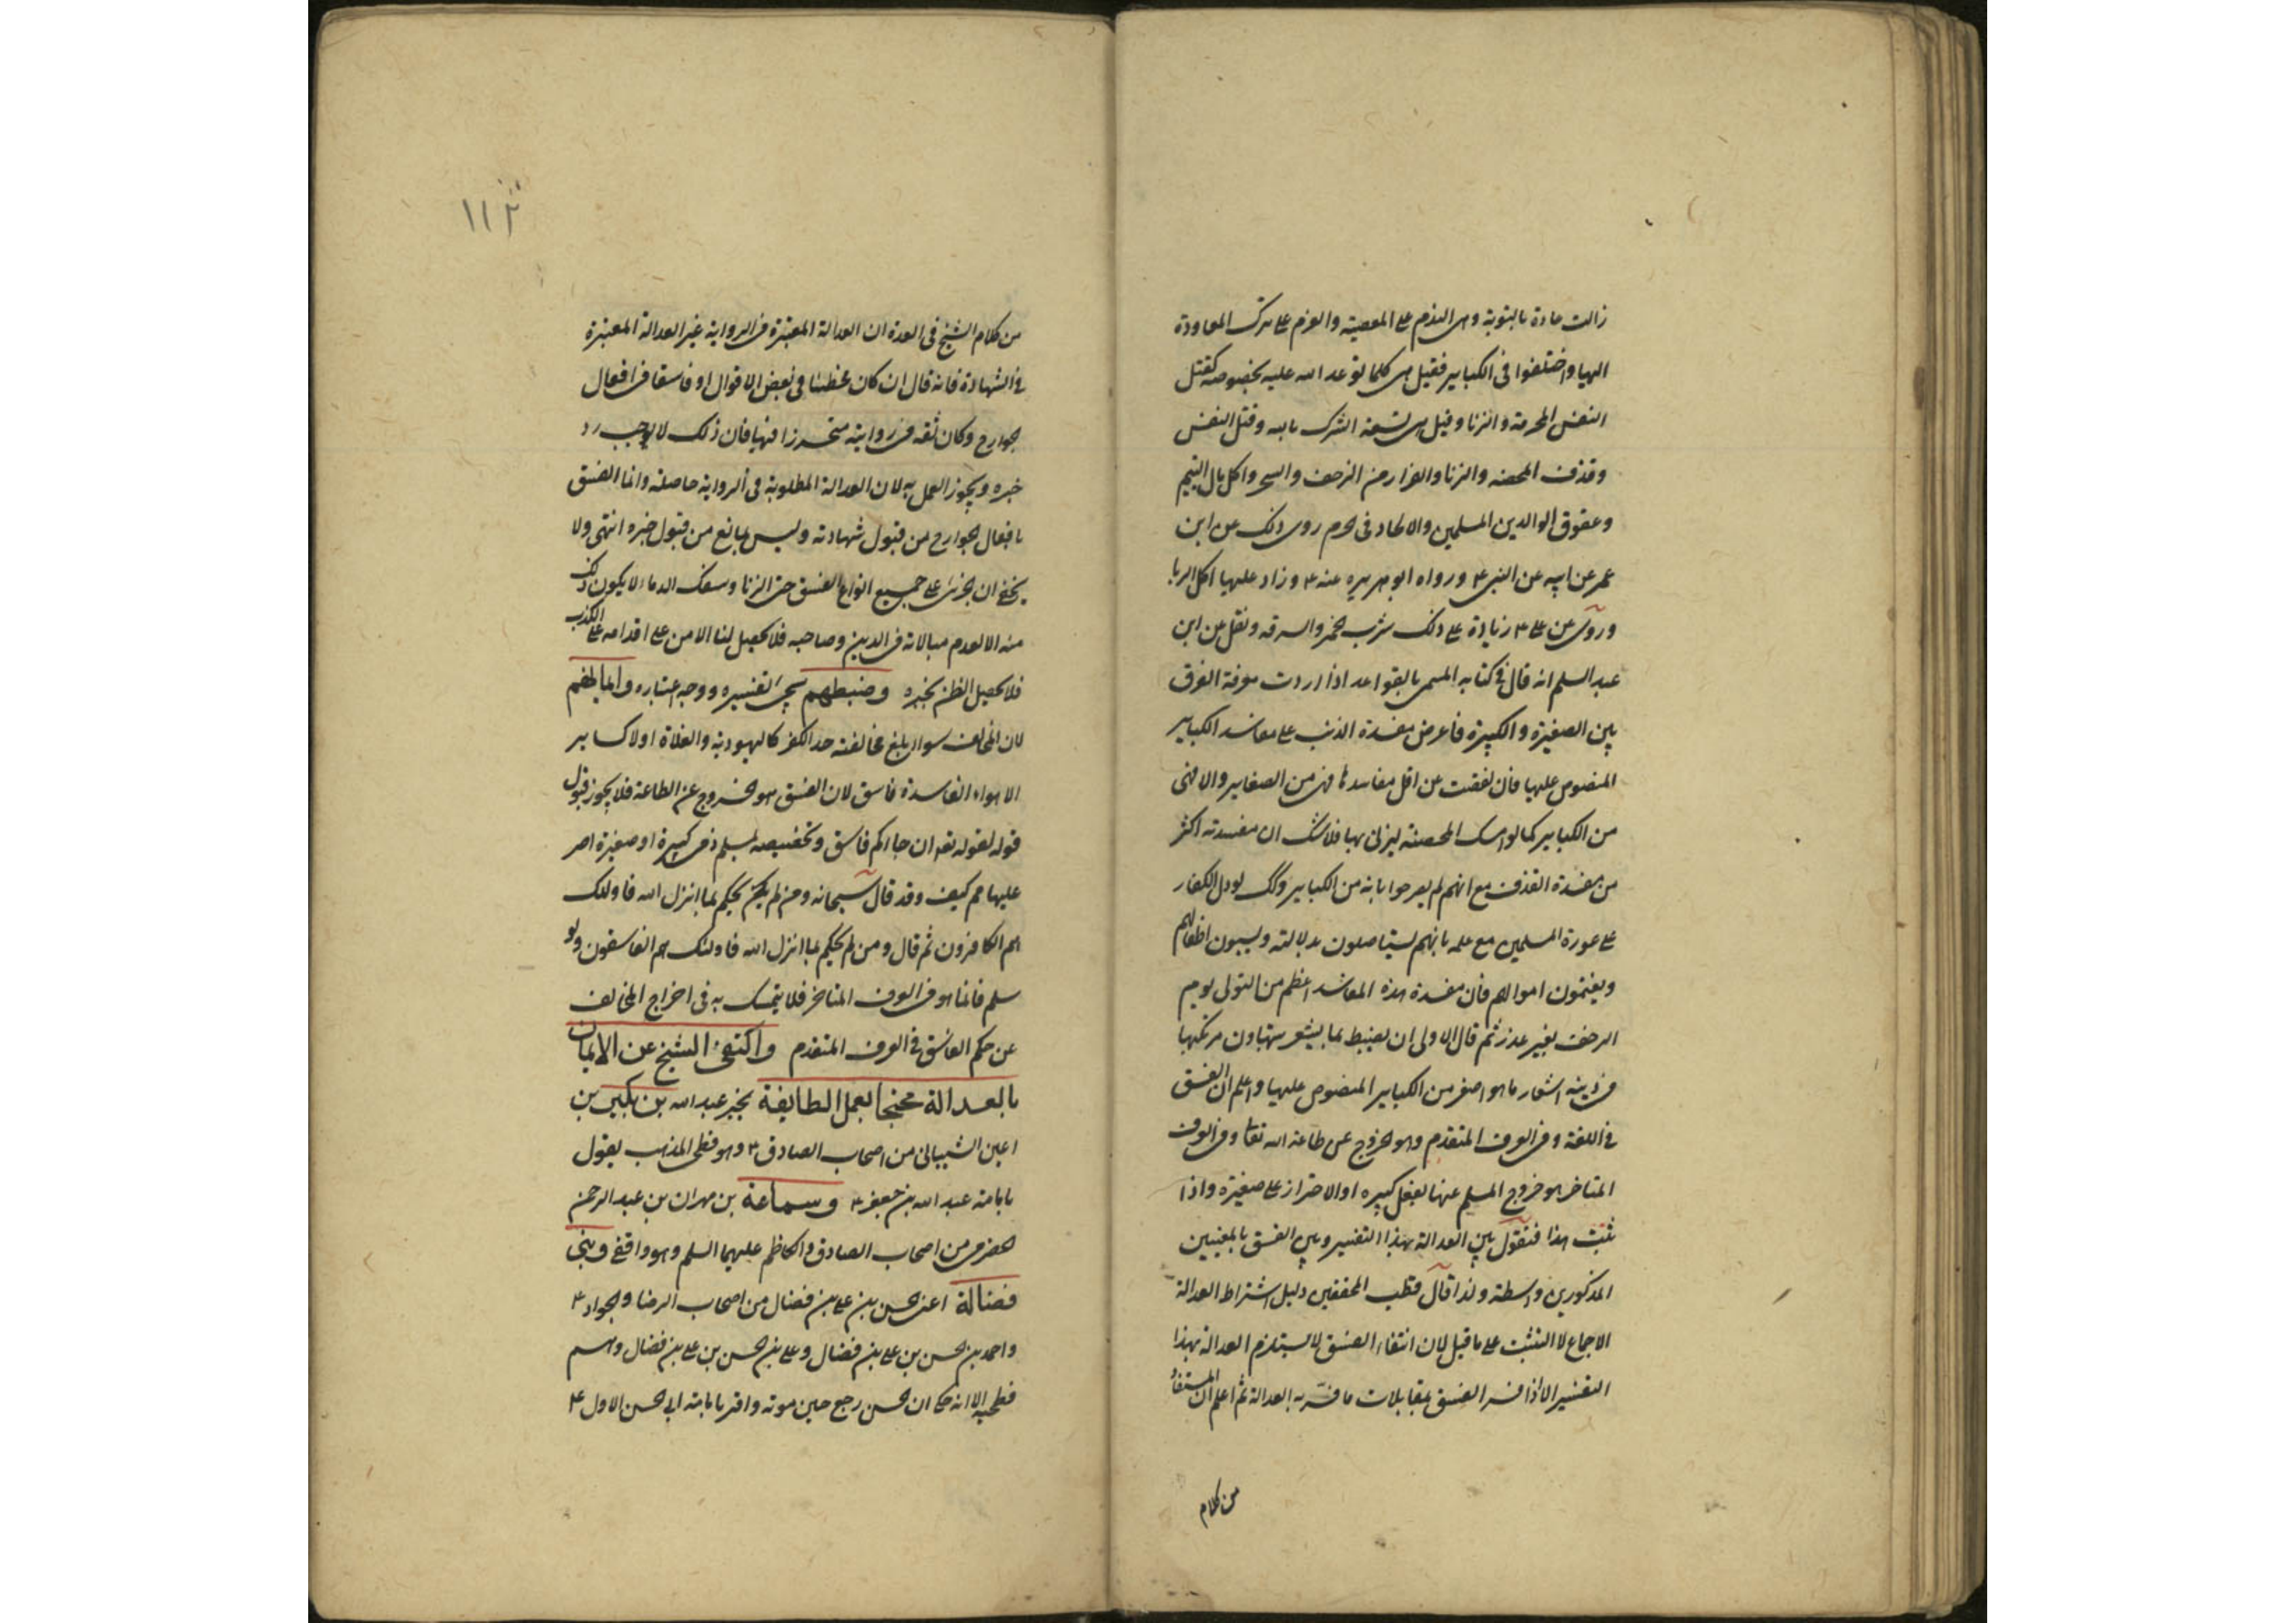 زالت عادة بالتوبة وهى الندم على المعصية والعزم على ترك المعاودة
اليها واختلفوا فى الكباير فقيل هى كلما توعد الله عليه بخصوصه كقتل
النفس المحرمة والزنا وقيل هى تسعة الشرك بالله وقتل النفس
وقذف المحصنه والزنا والفرار من الزحف والسحر واكل مال اليتيم
وعقوق الوالدين المسلمين والالحاد فى الحرم روى ذلك عن ابن
عمر عن ابيه عن النبى ع ورواه ابو هريره عنه ع وزاد عليها اكل الربا
وروى عن على ع زيادة على ذلك شرب الخمر والسرقه ونقل عن ابن
عبد السلم انه قال فى كتابه المسمى بالقواعد اذا اردت معرفة الفرق
بين الصغيرة والكبيرة فاعرض مفسدة الذنب على مفاسد الكباير
المنصوص عليها فان نقصت عن اقل مفاسدها فهى من الصغاير والا فهى
من الكباير كما لو امسك المحصنة ليزنى بها فلا شك ان مفسدته اكثر
من مفسدة القذف مع انهم لم يصرحوا بانه من الكباير وكك لو دل الكفار
على عورة المسلمين مع علمه بانهم يستاصلون بدلالته ويسبون اطفالهم
ويغتمون اموالهم فان مفسدة هذه المفاسد اعظم من التولى يوم
الزحف بغير عذر ثم قال الاولى ان يضبط بما يشعر بتهاون مرتكبها
فى دينه اشعار ما هو اصغر من الكباير المنصوص عليها واعلم ان الفسق
فى اللغة وفى العرف المتقدم وهو الخروج عن طاعة الله تعا وفى العرف
المتاخر هو خروج المسلم عنها بفعل كبيره او الاصرار على صغيرة واذا
ثبت هذا فنقول بين العدالة بهذا التفسير وبين الفسق بالمعنيين
المذكورين واسطة ولذا قال قطب المحققين دليل اشتراط العدالة
الاجماع لا التثبت على ما قيل لان انتفاء الفسق لا يستلزم العدالة بهذا
التفسير الا اذا فسر الفسق بمقابلات ما فسر به العدالة ثم اعلم ان المستفاد
من كلام
١١٢
من كلام الشيخ فى العدة ان العدالة المعتبرة فى الرواية غير العدالة المعتبرة
فى الشهادة فانه قال ان كان مخطئا فى بعض الاقوال او فاسقا فى افعال
الجوارح وكان ثقه فى روايته متحرزا فيها فان ذلك لا يوجب رد
خبره ويجوز العمل به لان العدالة المطلوبة فى الرواية حاصلة وانما الفسق
بافعال الجوارح من قبول شهادته وليس بمانع من قبول خبره انتهى ولا
يخفى ان الجرئ على جميع انواع الفسق حتى الزنا وسفك الدماء لا يكون ذلك
منه الا لعدم مبالاته فى الدين وصاحبه فلا يحصل لنا الامن على اقدامه على الكذب
فلا يحصل الظن بخبره وضبطهم سيجئ تفسيره ووجه اعتباره وايمانهم
لان المخالف سواء بلغ مخالفته حد الكفر كاليهودية والغلاة او لا كساير
الاهواء الفاسدة فاسق لان الفسق هو الخروج عن الطاعة فلا يجوز قبول
قوله لقوله تعه ان جاءكم فاسق وتخصيصه بمسلم ذى كبيرة او صغيرة اصر
عليها تحكم كيف وقد قال سبحانه ومن لم يحكم بما انزل الله فاولئك
هم الكافرون ثم قال ومن لم يحكم بما انزل الله فاولئك هم الفاسقون ولو
سلم فانما هو فى العرف المتاخر فلا يتمسك به فى اخراج المخالف
عن حكم الفاسق فى العرف المتقدم واكتفى الشيخ عن الايمان
بالعدالة محتجا بعمل الطايفة بخبر عبد الله بن بكير بن
اعين الشيبانى من اصحاب الصادق ع وهو فطحى المذهب يقول
بامامة عبد الله بن جعفر ع وسماعة بن مهران بن عبد الرحمن
الحضرمى من اصحاب الصادق والكاظم عليهما السلم وهو واقفى وبنى
فضالة اعنى الحسن بن على بن فضال من اصحاب الرضا والجواد ع
واحمد بن الحسن بن على بن فضال وعلى بن الحسن بن على بن فضال وهم
فطحيه الا انه حكى ان الحسن رجع حين موته واقر بامامة ابى الحسن الاول ع